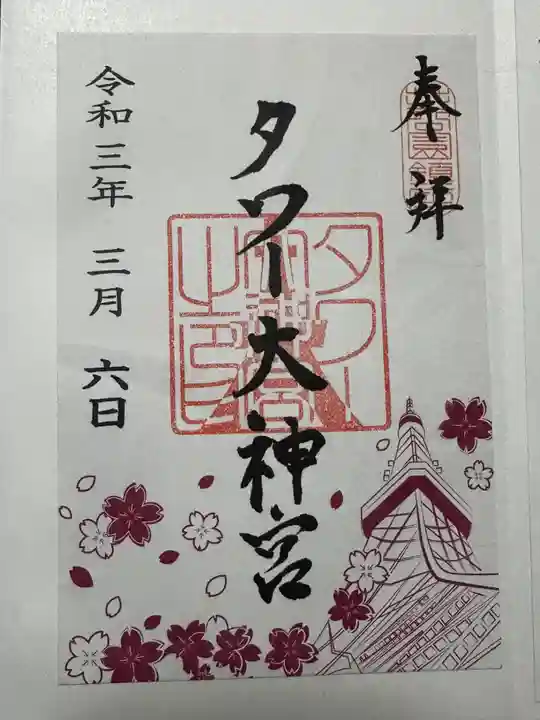 奉拝
タワー大神宮
令和三年 三月 六日